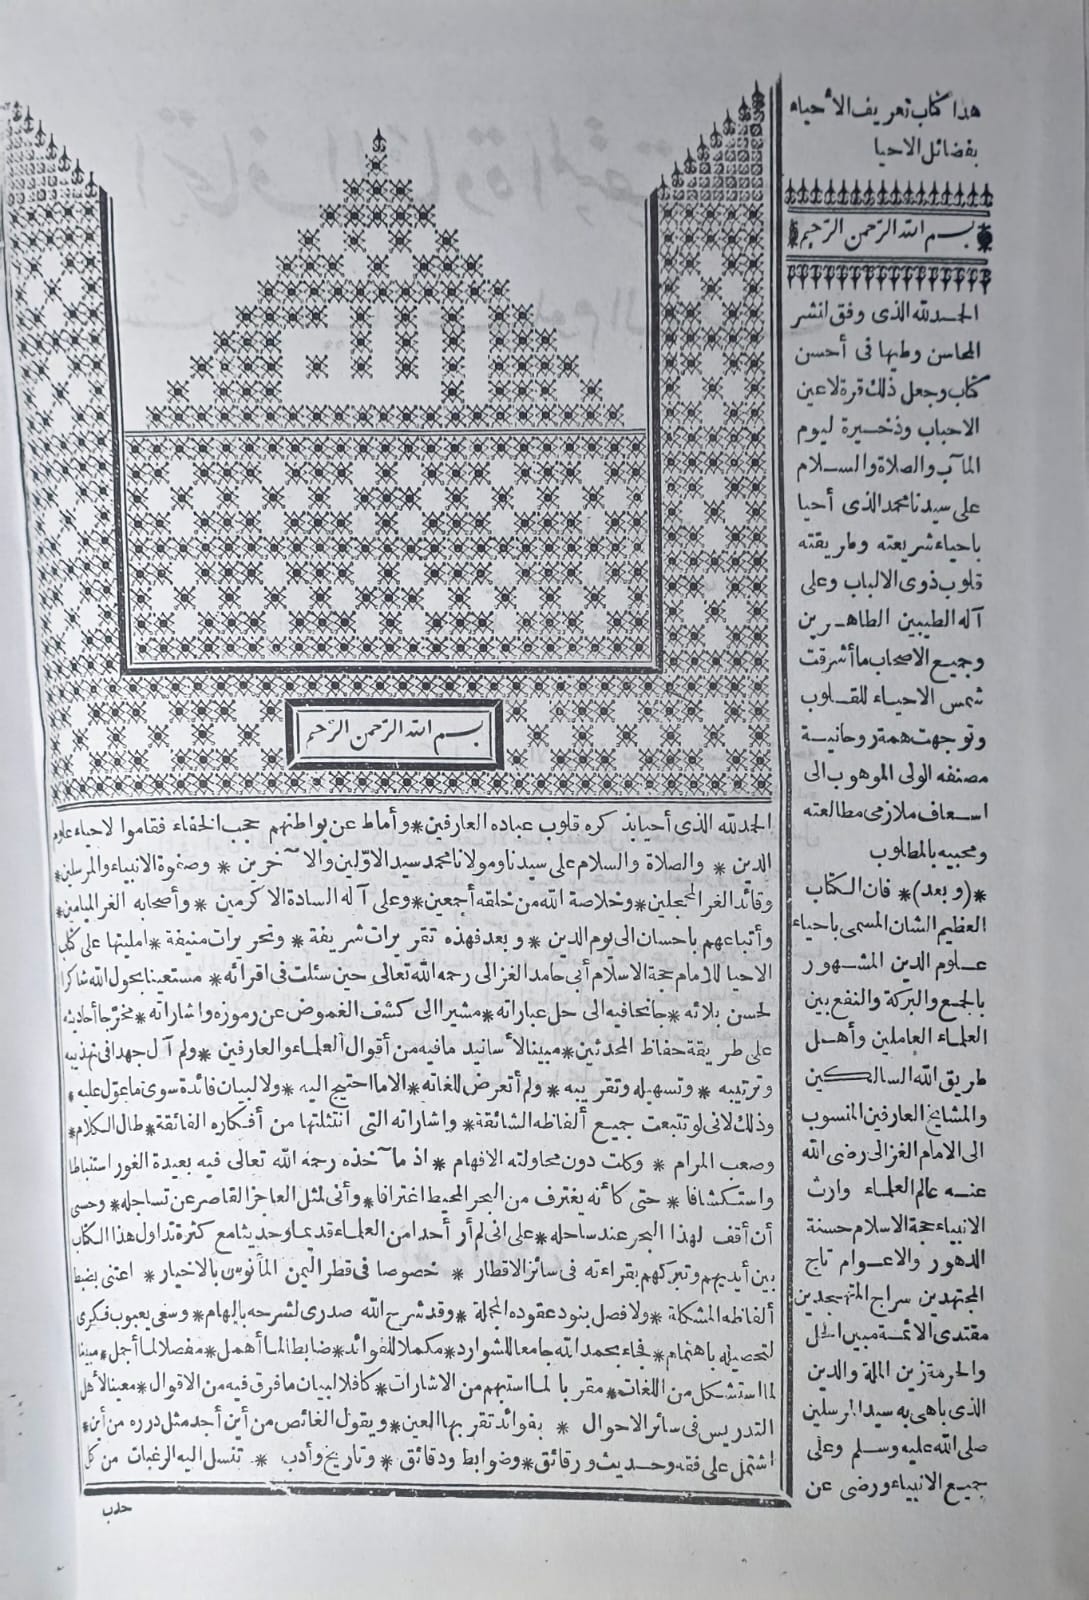 هذا كتاب تعريف الأحياء
بفضائل الاحيا
بسم الله الرّحمن الرّحيم
الحمد لله الذى وفق لنشر
المحاسن وطيها فى أحسن
كتاب وجعل ذلك قرة لاعين
الاحباب وذخيرة ليوم
المآب والصلاة والسلام
على سيدنا محمد الذى أحيا
باحياء شريعته وطريقته
قلوب ذوى الالباب وعلى
آله الطيبين الطاهرين
وجميع الاصحاب ما أشرقت
شمس الاحياء للقلوب
وتوجهت همة روحانية
مصنفه الولى الموهوب الى
اسعاف ملازمى مطالعته
ومحبيه بالمطلوب
*(وبعد)* فان الكتاب
العظيم الشان المسمى باحياء
علوم الدين المشهور
بالجمع والبركة والنفع بين
العلماء العاملين وأهل
طريق الله السالكين
والمشايخ العارفين المنسوب
الى الامام الغزالى رضى الله
عنه عالم العلماء وارث
الانبياء حجة الاسلام حسنة
الدهور والاعوام تاج
المجتهدين سراج المتهجدين
مقتدى الائمة مبين الحل
والحرمة زين الملة والدين
الذى باهى به سيد المرسلين
صلى الله عليه وسلم وعلى
جميع الانبياء ورضى عن
بسم الله الرّحمن الرّحيم
الحمد لله الذى أحيا بذكره قلوب عباده العارفين * وأماط عن بواطنهم حجب الخفاء فقاموا لاحياء علوم
الدين * والصلاة والسلام على سيدنا ومولانا محمد سيد الاوّلين والآخرين * وصفوة الانبياء والمرسلين *
وقائد الغر المحجلين * وخلاصة الله من خلقه أجمعين * وعلى آله السادة الاكرمين * وأصحابه الغر الميامين *
وأتباعهم باحسان الى يوم الدين * وبعد فهذه تقريرات شريفة * وتحريرات منيفة * امليتها على كتاب
الاحيا للامام حجة الاسلام أبى حامد الغزالى رحمه الله تعالى حين سئلت فى اقرائه * مستعينا بحول الله شاكرا
لحسن بلائه * جانحا فيه الى حل عباراته * مشيرا الى كشف الغموض عن رموزه واشاراته * مخرّجا أحاديثه
على طريقة حفاظ المحدثين * مبينا لأسانيد مافيه من أقوال العلماء والعارفين * ولم آل جهدا فى تهذيبه
وترتيبه * وتسهيله وتقريبه * ولم أتعرض للغاته * الا ما احتيج اليه * ولا لبيان فائدة سوى ما عوّل عليه *
وذلك لانى لو تتبعت جميع ألفاظه الشائقة * واشاراته التى انتثلتها من أفكاره الفائقة * طال الكلام *
وصعب المرام * وكلت دون محاولته الافهام * اذ مآخذه رحمه الله تعالى فيه بعيدة الغور استنباطا
واستكشافا * حتى كأنه يغترف من البحر المحيط اغترافا * وأنى لمثل العاجز القاصر عن تساجله * وحسبى
أن أقف لهذا البحر عند ساحله * على انى لم أر أحدا من العلماء قديما وحديثا مع كثرة تداول هذا الكتاب
بين أيديهم وتبركهم بقراءته فى سائر الاقطار * خصوصا فى قطر اليمن المأنوس بالاخيار * اعتنى بضبط
ألفاظه المشكلة * ولا فصل بنود عقوده المجملة * وقد شرح الله صدرى لشرحه بالهام * وسعى يعبوب فكرى
لتحصيله باهتمام * فجاء بحمد الله جامعا للشوارد * مكملا للفوائد * ضابطا لما أهمل * مفصلا لما أجمل * مبينا
لما استشكل من اللغات * مقربا لما استبهم من الاشارات * كافلا لبيان ما فرق فيه من الاقوال * معينا لأهل
التدريس فى سائر الاحوال * بفوائد تقر بها العين * ويقول الغائص من أين أجد مثل درره من أين *
اشتمل على فقه وحديث ورقائق * وضوابط ودقائق * وتاريخ وأدب * تنسل اليه الرغبات من كل
حدب